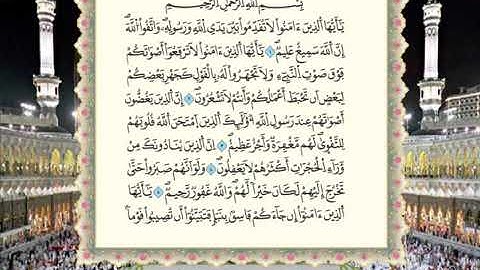 بِسْمِ اللَّهِ الرَّحْمَٰنِ الرَّحِيمِ
يَٰٓأَيُّهَا الَّذِينَ ءَامَنُوا۟ لَا تُقَدِّمُوا۟ بَيْنَ يَدَىِ اللَّهِ وَرَسُولِهِۦ وَاتَّقُوا۟ اللَّهَ
إِنَّ اللَّهَ سَمِيعٌ عَلِيمٌ ۝١ يَٰٓأَيُّهَا الَّذِينَ ءَامَنُوا۟ لَا تَرْفَعُوٓا۟ أَصْوَٰتَكُمْ
فَوْقَ صَوْتِ النَّبِىِّ وَلَا تَجْهَرُوا۟ لَهُۥ بِالْقَوْلِ كَجَهْرِ بَعْضِكُمْ
لِبَعْضٍ أَن تَحْبَطَ أَعْمَٰلُكُمْ وَأَنتُمْ لَا تَشْعُرُونَ ۝٢ إِنَّ الَّذِينَ يَغُضُّونَ
أَصْوَٰتَهُمْ عِندَ رَسُولِ اللَّهِ أُو۟لَٰٓئِكَ الَّذِينَ امْتَحَنَ اللَّهُ قُلُوبَهُمْ
لِلتَّقْوَىٰ لَهُم مَّغْفِرَةٌ وَأَجْرٌ عَظِيمٌ ۝٣ إِنَّ الَّذِينَ يُنَادُونَكَ مِن
وَرَآءِ الْحُجُرَٰتِ أَكْثَرُهُمْ لَا يَعْقِلُونَ ۝٤ وَلَوْ أَنَّهُمْ صَبَرُوا۟ حَتَّىٰ
تَخْرُجَ إِلَيْهِمْ لَكَانَ خَيْرًا لَّهُمْ وَاللَّهُ غَفُورٌ رَّحِيمٌ ۝٥ يَٰٓأَيُّهَا
الَّذِينَ ءَامَنُوٓا۟ إِن جَآءَكُمْ فَاسِقٌۢ بِنَبَإٍ فَتَبَيَّنُوٓا۟ أَن تُصِيبُوا۟ قَوْمًۢا